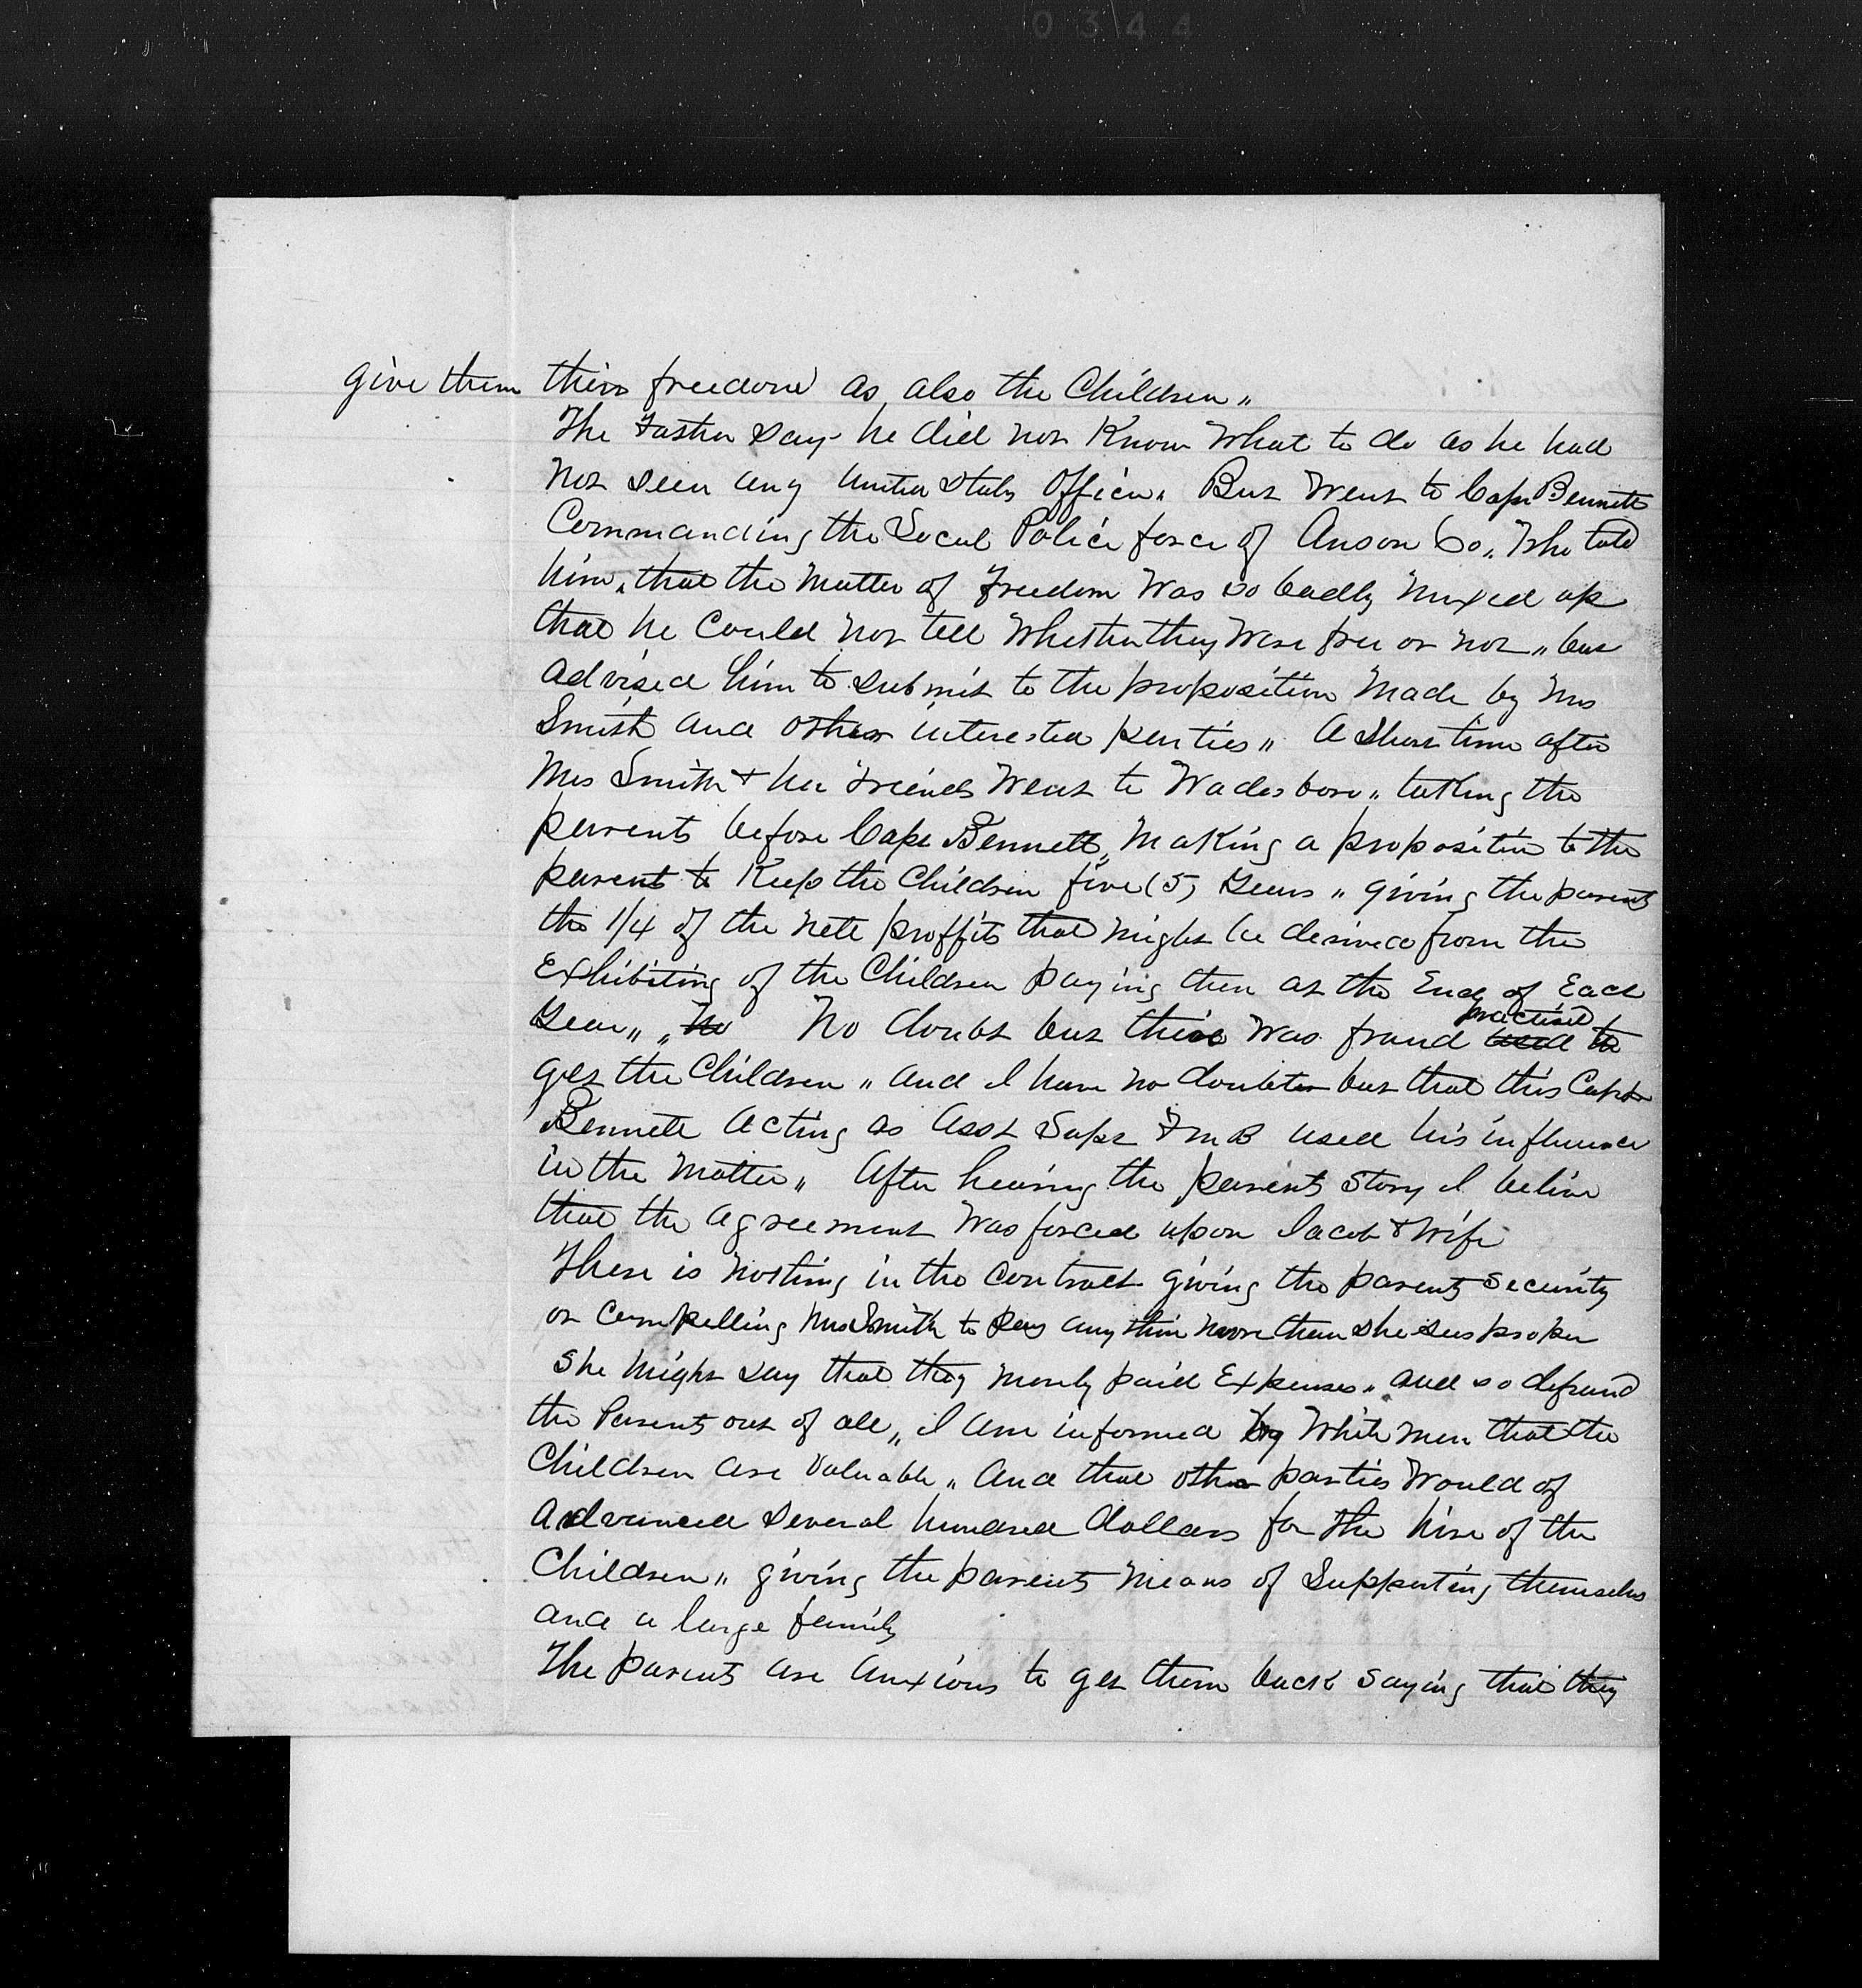 0344
give them their freedom as also the Children„
The Father Say he did not Know What to do as he had
Not Seen any United States Officer. But Went to Capt Bennett
Commanding the Local Police force of Anson Co., Who told
him, that the Matter of Freedom Was so badly Mixed up
that he Could not tell Whether they Were free or not „ but
advised him to submit to the proposition Made by Mrs
Smith and other interested parties„ A Short time after
Mrs Smith & her Friends Went to Wadesboro„ taKing the
parents before Capt Bennett, MaKing a proposition to the
parents to Keep the Children five (5) Years „ giving the parents
the 1/4 of the nett proffits that might be derived from the
Exhibiting of the Children paying then at the End of Each
Year„ „ No No doubt but there Was fraud practised used to
get the Children „ and I have no doubts but that this Capt
Bennett Acting as Asst Supt F M B used his influence
in the Matter„ After hearing the parents Story I believe
that the Agreement Was forced upon Jacob & Wife
There is Nothing in the Contract giving the parents Security
or Compelling Mrs Smith to pay any thin more than She sees proper
She Might say that they Merely paid Expenses„ and so defraud
the Parents out of all„ I am informed by White men that the
Children are Valuable„ And that other parties Would of
Advanced Several hundred dollars for the hire of the
Children„ giving the parents Means of Supporting themselves
and a large family
The parents are Anxious to get them back Saying that they